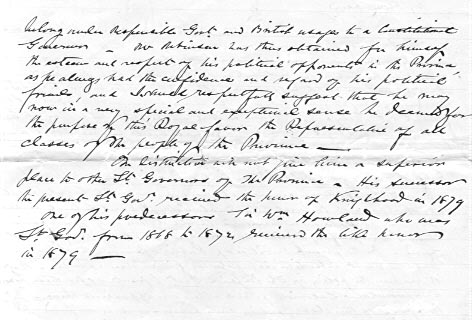 belong under Responsible Govt. and British usages to a Constitutional
Governor — Mr Robinson has thus obtained for himself
the esteem and respect of his political opponents in the Province
as he always had the confidence and regard of his political
friends and I would respectfully suggest that he may
now in a very special and exceptional sense be deemed for
the purpose of this Royal favor the Representative of all
classes of the people of the Province —
The Distinction will not give him a superior
place to other Lt. Governors of the Province — His successor
the present Lt. Govr. received the honor of Knighthood in 1879
one of his predecessors Sir Wm Howland who was
Lt. Govr. from 1868 to 1872 received the like honor
in 1879 —